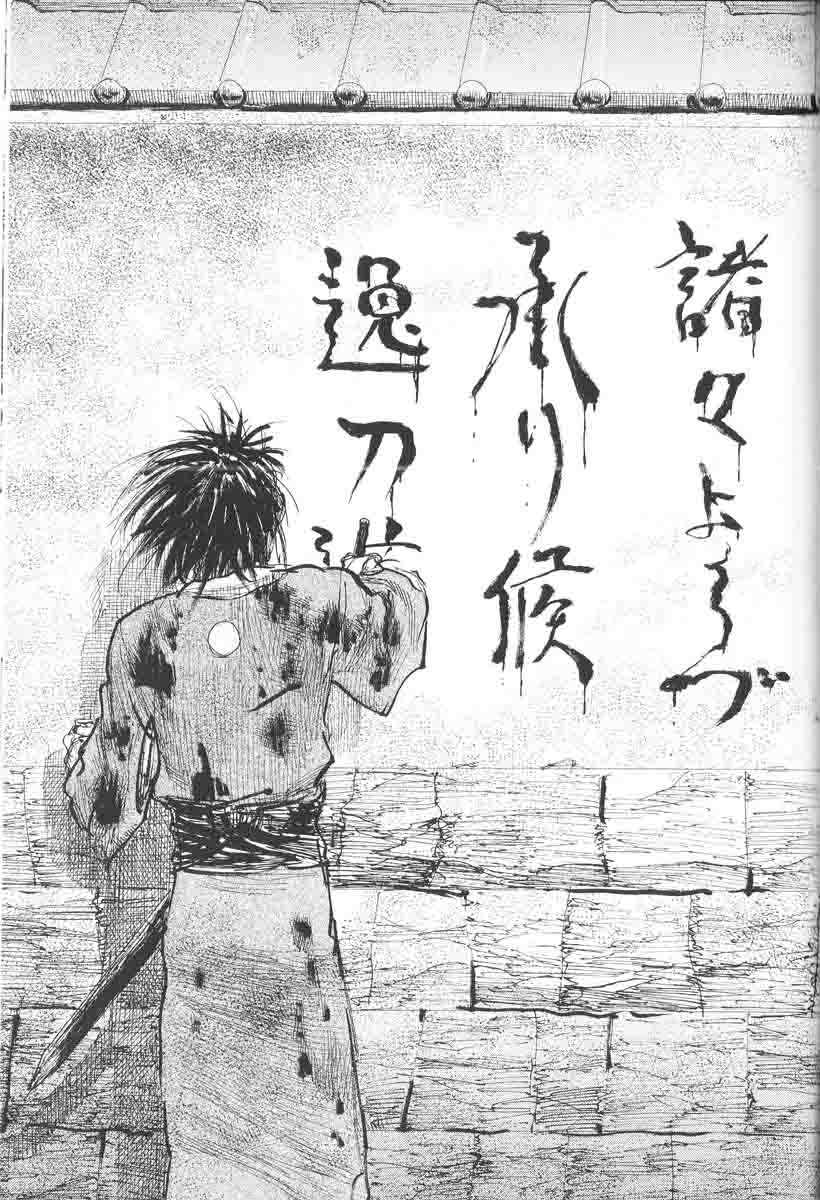 諸々よろづ
承り候
逸刀